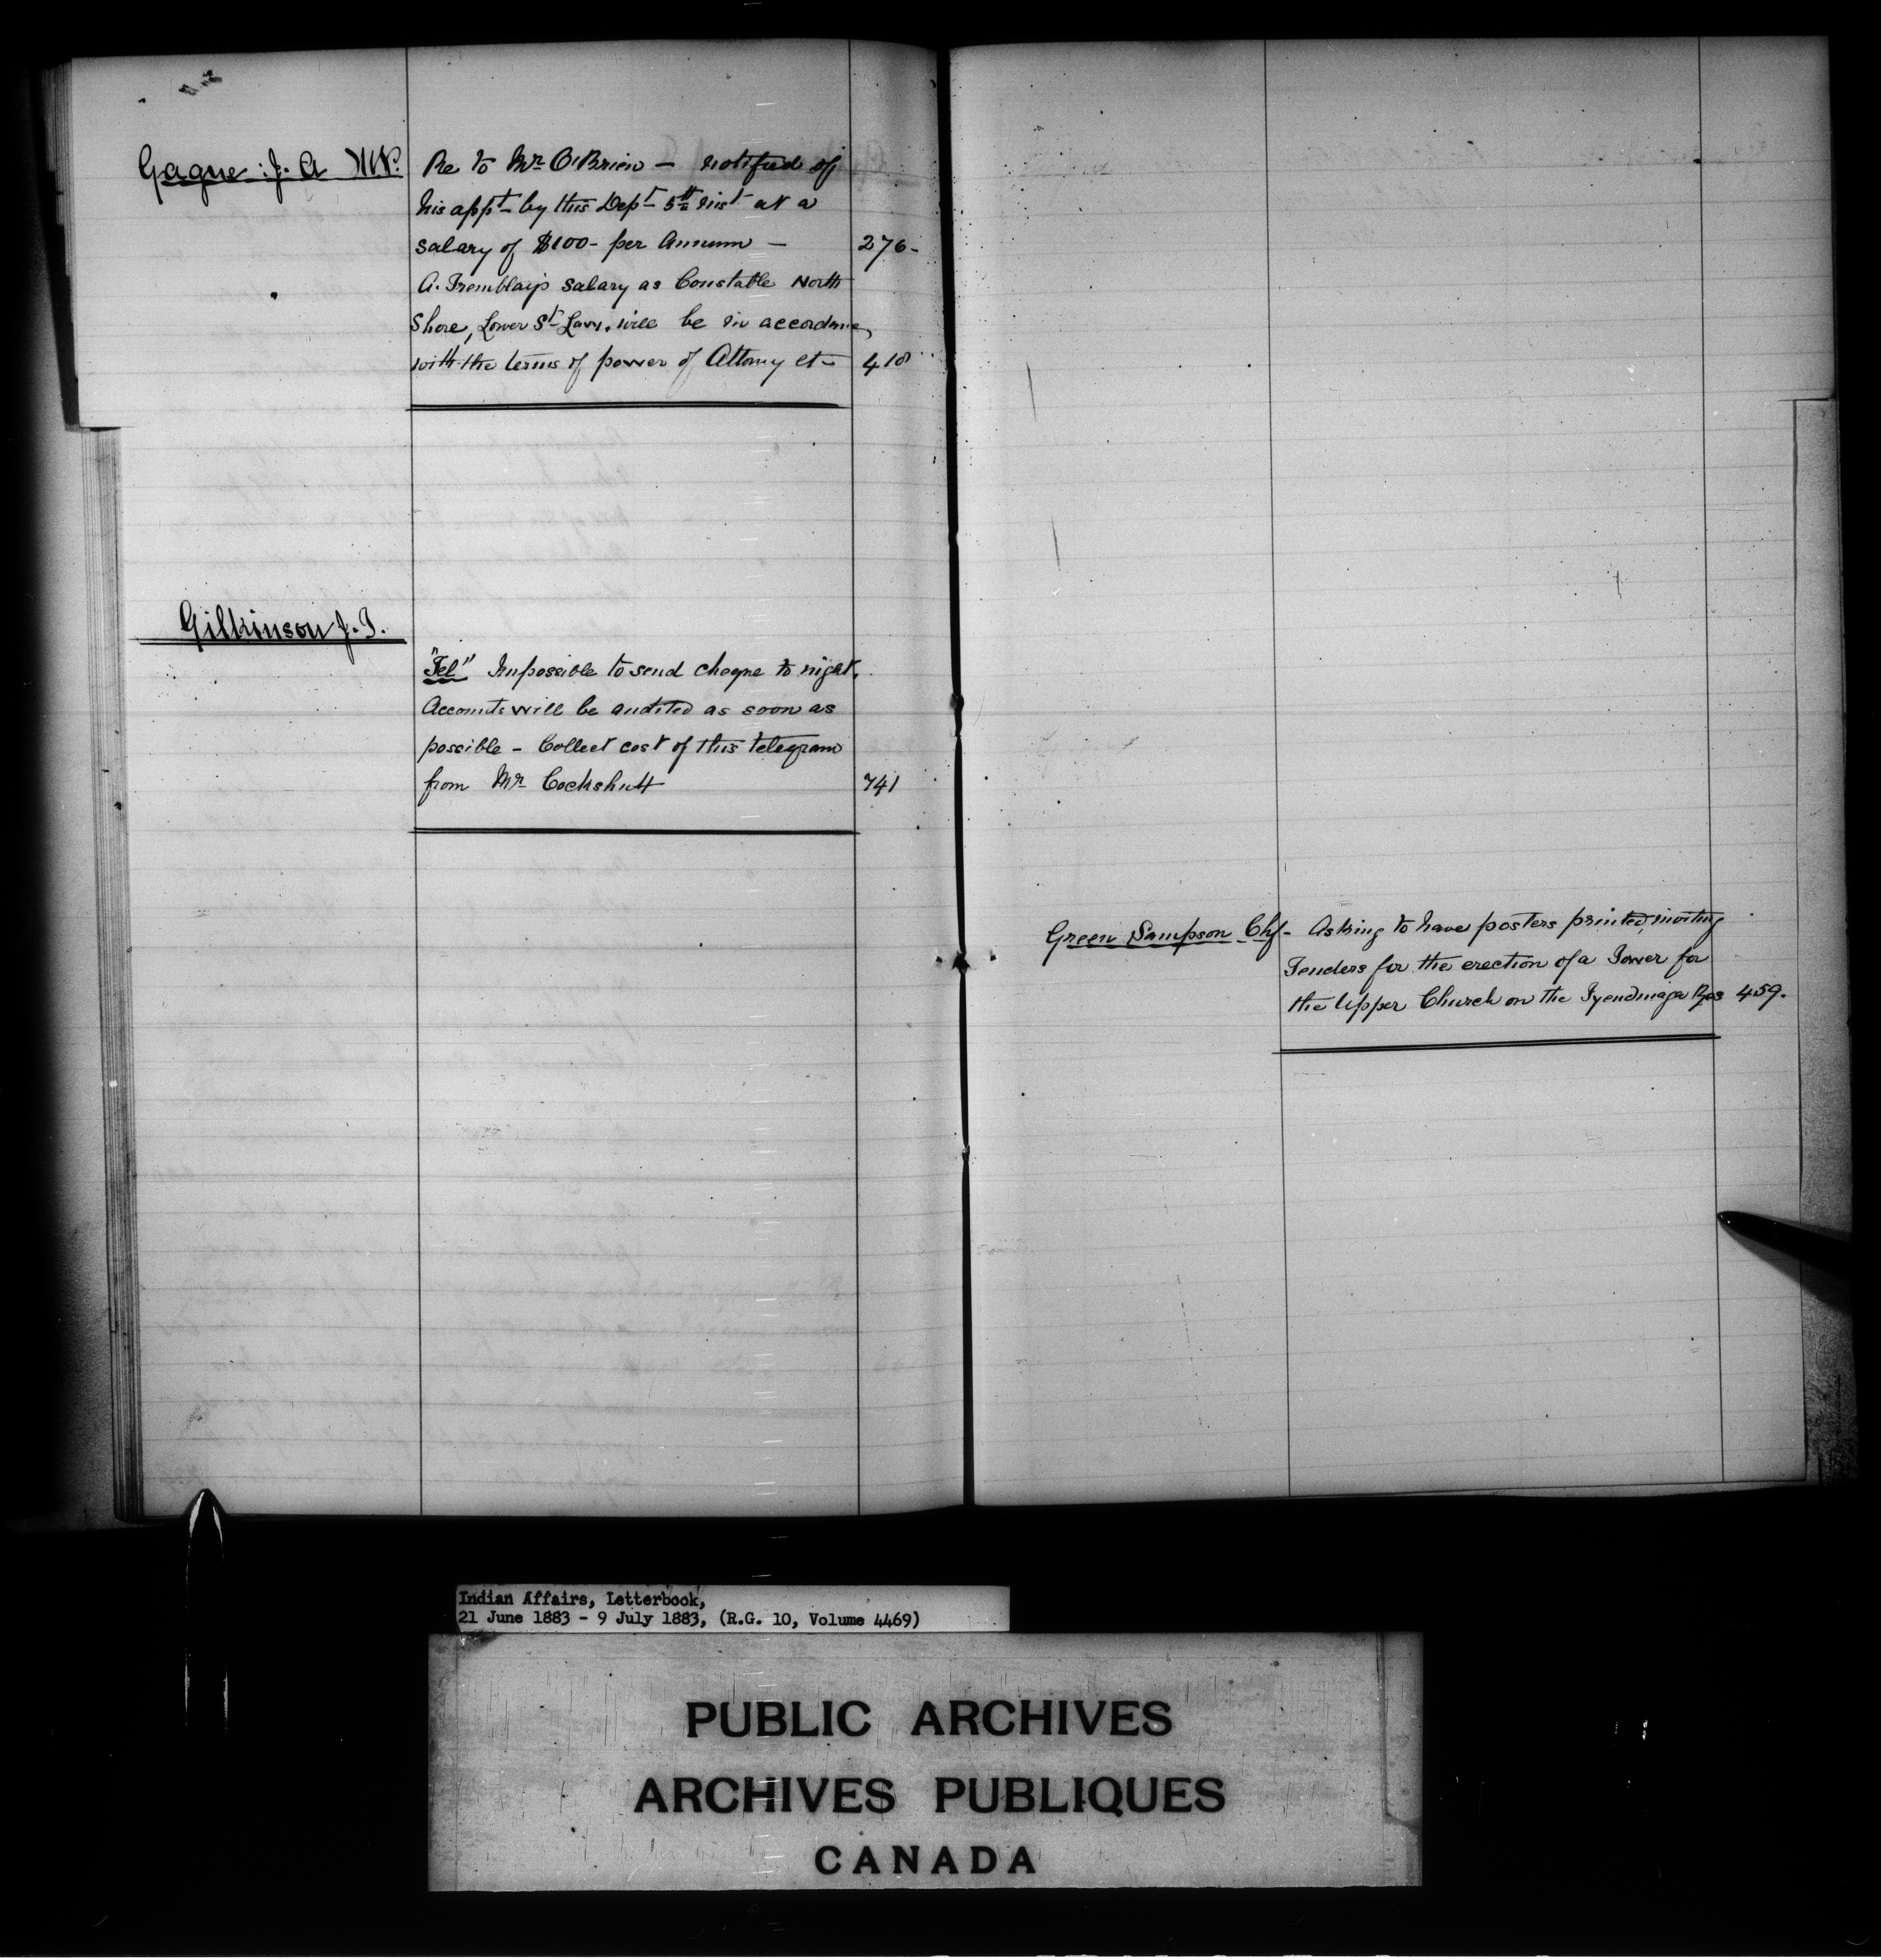 Gagne J. A M.P.
Re to Mr. O'Brien — notified of
his appt- by this Dept- 5th inst at a
salary of $100- per Annum — 276-
A. Tremblay's salary as Constable North
Shore, Lower St- Law. will be in accordance
with the terms of power of Attorny et- 418
Gilkinson J. T.
"Tel" Impossible to send cheque to night.
Accounts will be audited as soon as
possible - Collect cost of this telegram
from Mr. Cockshutt 741
Green Sampson Chf- Asking to have posters printed inviting
Tenders for the erection of a Tower for
the Upper Church on the Tyendinaga Res 459.
Indian Affairs, Letterbook,
21 June 1883 - 9 July 1883, (R.G. 10, Volume 4469)
PUBLIC ARCHIVES
ARCHIVES PUBLIQUES
CANADA